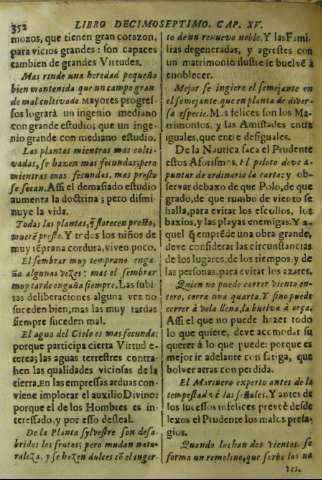 352 LIBRO DECIMOSEPTIMO. CAP. XV.
mozos, que tienen gran corazon,
para vicios grandes: son capaces
tambien de grandes Virtudes.
Mas rinde una heredad pequeña
bien mantenida que un campo gran
de mal cultivado. Mayores progres-
sos logrará un ingenio mediano
con grande estudio; que un inge-
nio grande con mediano estudio.
Las plantas mientras mas culti-
vadas, se hazen mas fecundas; pero
mientras mas fecundas, mas presto
se secan. Assi el demasiado estudio
aumenta la doctrina; pero dismi-
nuye la vida.
Todas las plantas, q̃ florecen presto,
mueren presto. Y todos los niños de
muy tẽprana cordura, viven poco.
El sembrar muy temprano enga-
ña algunas vezes: mas el sembrar
muy tarde engaña siempre. Las subi-
tas deliberaciones alguna vez no
suceden bien, mas las muy tardas
siempre suceden mal.
El agua del Cielo es mas fecunda:
porque participa cierta Virtud e-
terea; las aguas terrestres contra-
hen las qualidades viciosas de la
tierra, En las empressas arduas con-
viene implorar el auxilio Divino:
porque el de los Hombres es in-
teressado, y por esso desleal.
De la Planta sylvestre son desa-
bridos los frutos; pero mudan natu-
raleza, y se hazen dulces cõ el inger-
to de un renuevo noble. Y las Fami-
lias degeneradas, y agrestes con
un matrimonio ilustre se buelvē á
enoblecer.
Mejor se ingiere el semejante en
el semejante, que en planta de diver-
sa especie. Mas felices son los Ma-
trimonios, y las Amistades entre
iguales, que entre desiguales.
De la Nautica saca el Prudente
estos Aforismos. El piloto deve a-
puntar de ordinario la carta; y ob-
servar debaxo de que Polo, de que
grado, de que rumbo de viento se
halla, para evitar los escollos, los
baxios, y las playas enemigas. Y a-
quel q̃ emprẽde una obra grande,
deve considerar las circunstancias
de los lugares, de los tiempos, y de
las personas, para evitar los azares.
Quien no puede correr viento en-
tero, corra una quarta. Y sino puede
correr á vela llena, la buelva á orça.
Assi el que no puede hazer todo
lo que quiere, deve acomodar su
querer á lo que puede: porque es
mejor ir adelante con fatiga, que
bolver atras con perdida.
El Marinero experto antes de la
tempestad vè las señales. Y antes de
los sucessos infelices prevè desde
lexos el Prudente los malos presa-
gios.
Quando luchan dos vientos, se
forma un remolino, que sorbe las na-
ves.